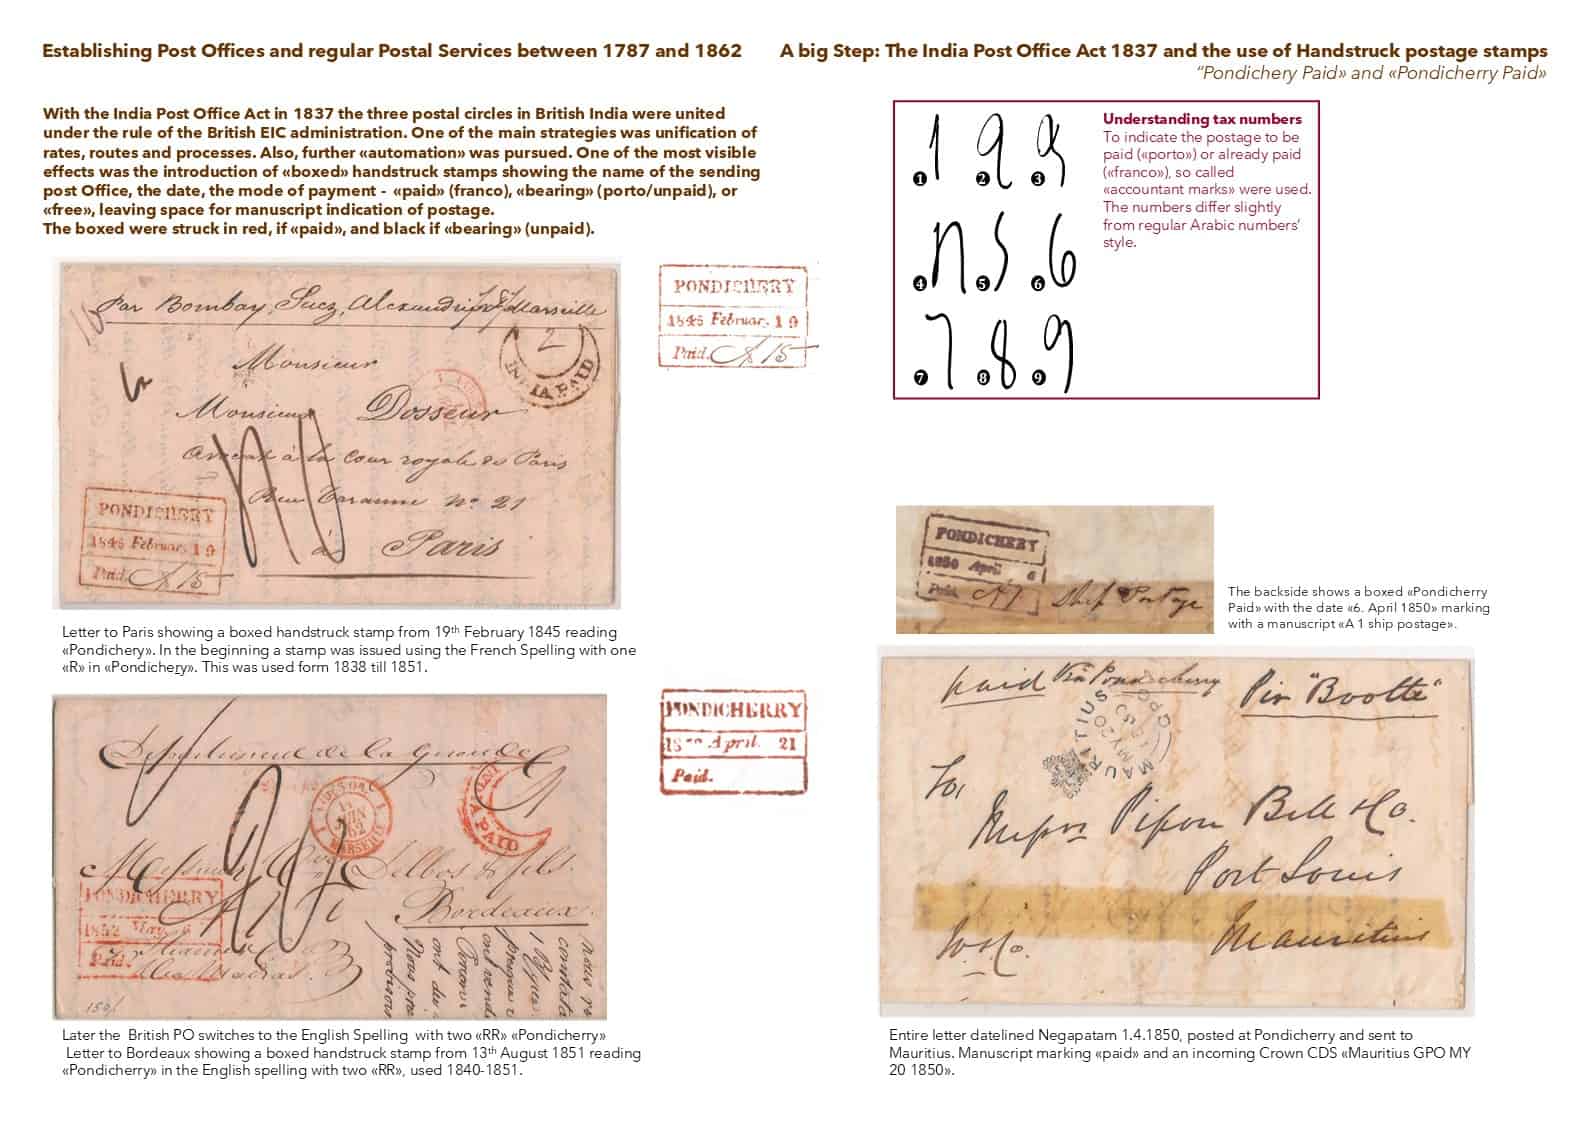 Establishing Post Offices and regular Postal Services between 1787 and 1862
A big Step: The India Post Office Act 1837 and the use of Handstruck postage stamps
“Pondichery Paid» and «Pondicherry Paid»
With the India Post Office Act in 1837 the three postal circles in British India were united
under the rule of the British EIC administration. One of the main strategies was unification of
rates, routes and processes. Also, further «automation» was pursued. One of the most visible
effects was the introduction of «boxed» handstruck stamps showing the name of the sending
post Office, the date, the mode of payment - «paid» (franco), «bearing» (porto/unpaid), or
«free», leaving space for manuscript indication of postage.
The boxed were struck in red, if «paid», and black if «bearing» (unpaid).
Par Bombay, Suez, Alexandrie Marseille
2
INDIA PAID
Monsieur
Monsieur Dosseur
Avocat à la Cour royale de Paris
Rue Taranne No 21
à Paris
PONDICHERY
1845 Februar. 19
Paid. A 15
PONDICHERY
1845 Februar. 19
Paid. A 15
Letter to Paris showing a boxed handstruck stamp from 19th February 1845 reading
«Pondichery». In the beginning a stamp was issued using the French Spelling with one
«R» in «Pondichery». This was used form 1838 till 1851.
Departement de la Gironde
INDIA PAID
JUIN
52
MARSEILLE
Messieurs Delbos & fils
Bordeaux
PONDICHERRY
1852 May 6
Paid.
PONDICHERRY
18 April. 21
Paid.
Later the British PO switches to the English Spelling with two «RR» «Pondicherry»
Letter to Bordeaux showing a boxed handstruck stamp from 13th August 1851 reading
«Pondicherry» in the English spelling with two «RR», used 1840-1851.
1 2 3
4 5 6
7 8 9
Understanding tax numbers
To indicate the postage to be
paid («porto») or already paid
(«franco»), so called
«accountant marks» were used.
The numbers differ slightly
from regular Arabic numbers’
style.
PONDICHERY
1850 April 6
Paid. A 1 Ship Postage
The backside shows a boxed «Pondicherry
Paid» with the date «6. April 1850» marking
with a manuscript «A 1 ship postage».
paid Via Pondicherry Pir "Bootte"
MAURITIUS GPO
MY 20
1850
To,
Messrs Pipon Bell & Co.
Port Louis
Mauritius
Entire letter datelined Negapatam 1.4.1850, posted at Pondicherry and sent to
Mauritius. Manuscript marking «paid» and an incoming Crown CDS «Mauritius GPO MY
20 1850».